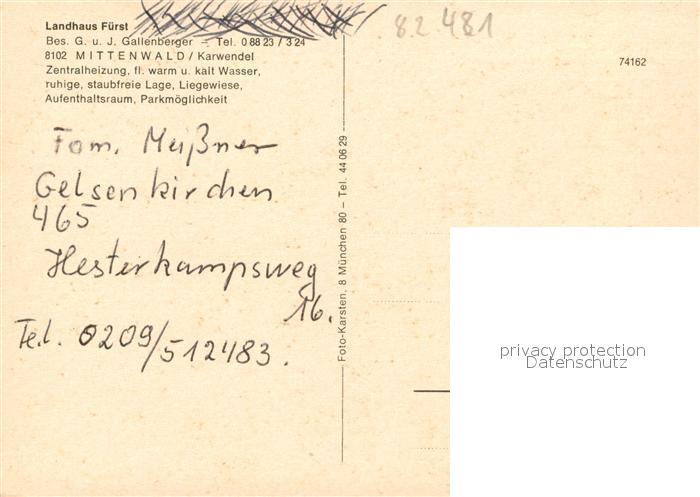 Landhaus Fürst
Bes. G. u. J. Gallenberger – Tel. 0 88 23 / 3 24
8102 MITTENWALD / Karwendel
Zentralheizung, fl. warm u. kalt Wasser,
ruhige, staubfreie Lage, Liegewiese,
Aufenthaltsraum, Parkmöglichkeit
Fam. Meißner
Gelsenkirchen
465
Hesterkampsweg
16.
Tel. 0209/512483.
Foto-Karsten, 8 München 80 – Tel. 44 06 29
8.2.481
74162
privacy protection
Datenschutz